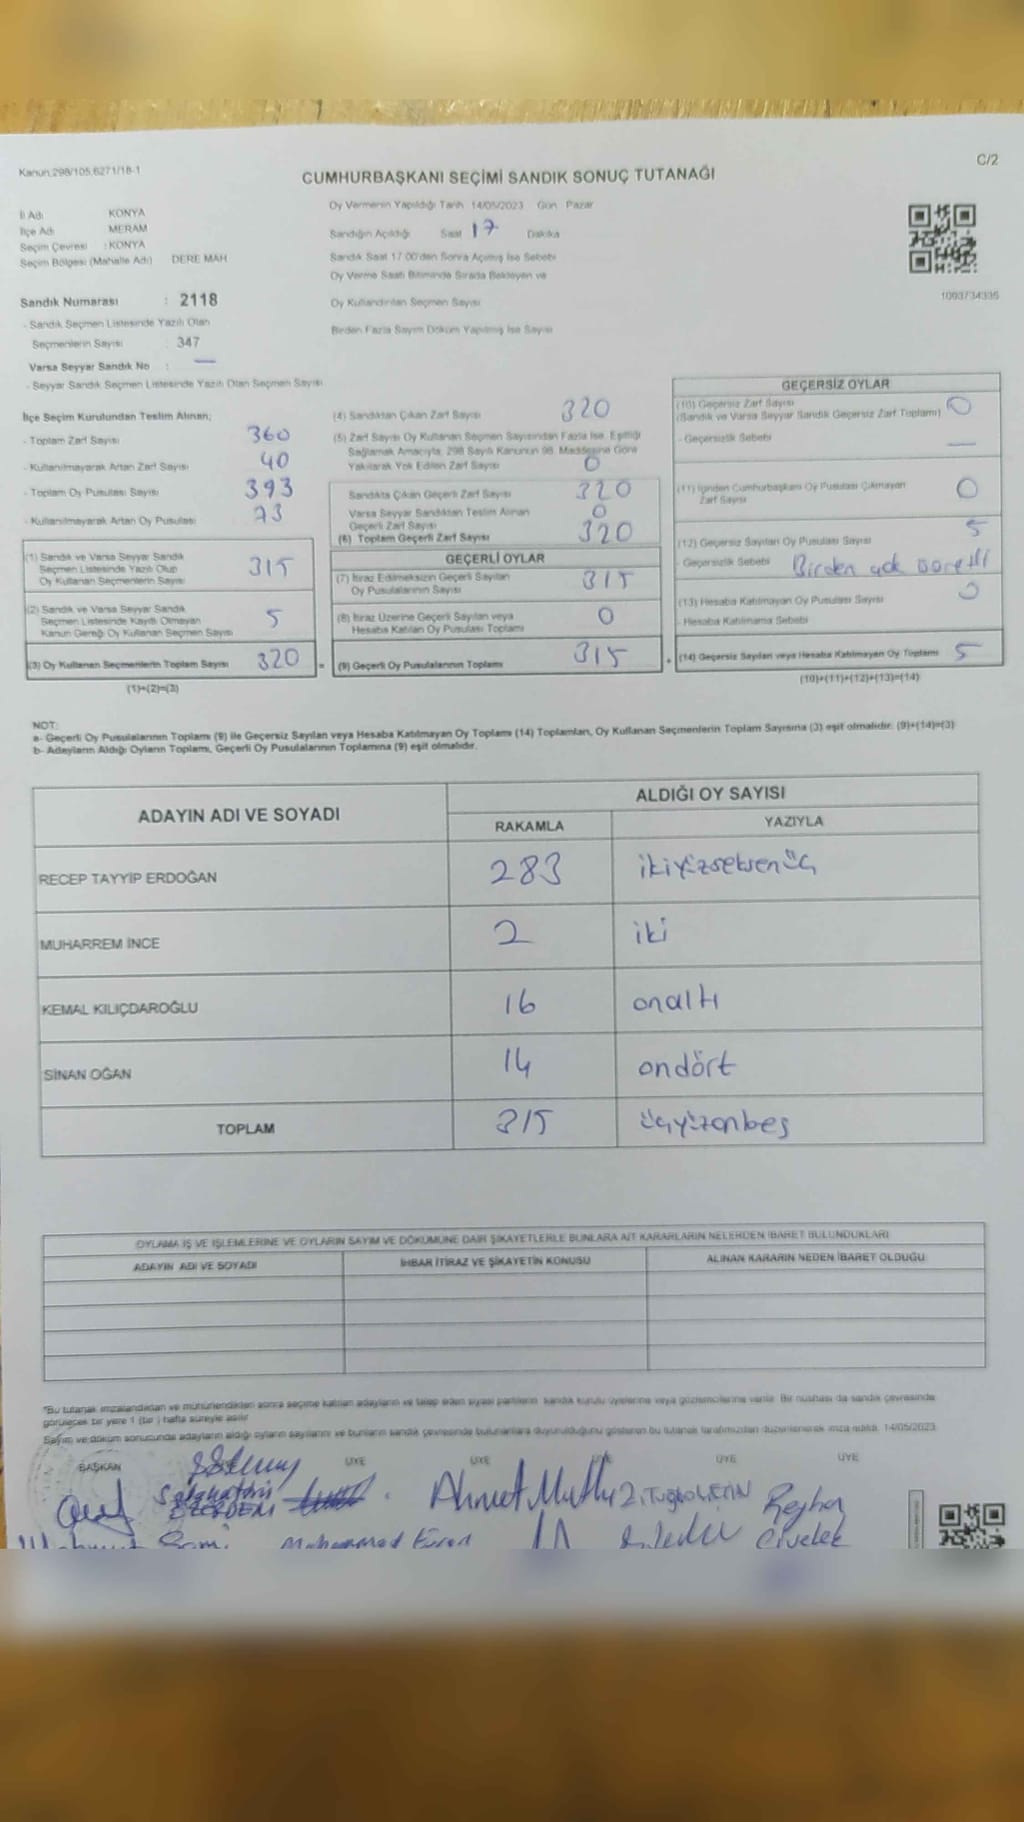 Kanun:298/105,6271/18-1
C/2
CUMHURBAŞKANI SEÇİMİ SANDIK SONUÇ TUTANAĞI
İl Adı KONYA
İlçe Adı MERAM
Seçim Çevresi : KONYA
Seçim Bölgesi (Mahalle Adı) DERE MAH
Sandık Numarası : 2118
- Sandık Seçmen Listesinde Yazılı Olan
Seçmenlerin Sayısı 347
Varsa Seyyar Sandık No : —
- Seyyar Sandık Seçmen Listesinde Yazılı Olan Seçmen Sayısı
Oy Vermenin Yapıldığı Tarih 14/05/2023 Gün Pazar
Sandığın Açıldığı Saat 17 Dakika
Sandık Saat 17:00'den Sonra Açılmış İse Sebebi
Oy Verme Saati Bitiminde Sırada Bekleyen ve
Oy Kullandırılan Seçmen Sayısı
Birden Fazla Sayım Döküm Yapılmış İse Sayısı
1093734335
İlçe Seçim Kurulundan Teslim Alınan;
- Toplam Zarf Sayısı 360
- Kullanılmayarak Artan Zarf Sayısı 40
- Toplam Oy Pusulası Sayısı 393
- Kullanılmayarak Artan Oy Pusulası 73
(1) Sandık ve Varsa Seyyar Sandık
Seçmen Listesinde Yazılı Olup
Oy Kullanan Seçmenlerin Sayısı 315
(2) Sandık ve Varsa Seyyar Sandık
Seçmen Listesinde Kaydı Olmayan
Kanun Gereği Oy Kullanan Seçmen Sayısı 5
(3) Oy Kullanan Seçmenlerin Toplam Sayısı 320 =
(1)+(2)=(3)
(4) Sandıktan Çıkan Zarf Sayısı 320
(5) Zarf Sayısı Oy Kullanan Seçmen Sayısından Fazla İse, Eşitliği
Sağlamak Amacıyla, 298 Sayılı Kanunun 98. Maddesine Göre
Yakılarak Yok Edilen Zarf Sayısı 0
Sandıkta Çıkan Geçerli Zarf Sayısı 320
Varsa Seyyar Sandıktan Teslim Alınan
Geçerli Zarf Sayısı 0
(6) Toplam Geçerli Zarf Sayısı 320
GEÇERLİ OYLAR
(7) İtiraz Edilmeksizin Geçerli Sayılan
Oy Pusulalarının Sayısı 315
(8) İtiraz Üzerine Geçerli Sayılan veya
Hesaba Katılan Oy Pusulası Toplamı 0
(9) Geçerli Oy Pusulalarının Toplamı 315 +
GEÇERSİZ OYLAR
(10) Geçersiz Zarf Sayısı
(Sandık ve Varsa Seyyar Sandık Geçersiz Zarf Toplamı) 0
- Geçersizlik Sebebi —
(11) İçinden Cumhurbaşkanı Oy Pusulası Çıkmayan
Zarf Sayısı 0
(12) Geçersiz Sayılan Oy Pusulası Sayısı 5
- Geçersizlik Sebebi Birden çok
(13) Hesaba Katılmayan Oy Pusulası Sayısı 0
- Hesaba Katılmama Sebebi
(14) Geçersiz Sayılan veya Hesaba Katılmayan Oy Toplamı 5
(10)+(11)+(12)+(13)=(14)
NOT:
a- Geçerli Oy Pusulalarının Toplamı (9) ile Geçersiz Sayılan veya Hesaba Katılmayan Oy Toplamı (14) Toplamları, Oy Kullanan Seçmenlerin Toplam Sayısına (3) eşit olmalıdır. (9)+(14)=(3)
b- Adayların Aldığı Oyların Toplamı, Geçerli Oy Pusulalarının Toplamına (9) eşit olmalıdır.
ADAYIN ADI VE SOYADI ALDIĞI OY SAYISI
RAKAMLA YAZIYLA
RECEP TAYYİP ERDOĞAN 283 ikiyüzseksenüç
MUHARREM İNCE 2 iki
KEMAL KILIÇDAROĞLU 16 onaltı
SİNAN OĞAN 14 ondört
TOPLAM 315 üçyüzonbeş
OYLAMA İŞ VE İŞLEMLERİNE VE OYLARIN SAYIM VE DÖKÜMÜNE DAİR ŞİKAYETLERLE BUNLARA AİT KARARLARIN NELERDEN İBARET BULUNDUKLARI
ADAYIN ADI VE SOYADI İHBAR İTİRAZ VE ŞİKAYETİN KONUSU ALINAN KARARIN NEDEN İBARET OLDUĞU
"Bu tutanak imzalandıktan ve mühürlendikten sonra seçime katılan adayların ve talep eden siyasi partilerin sandık kurulu üyelerine veya gözlemcilerine verilir. Bir nüshası da sandık çevresinde
görülecek bir yere 1 (bir) hafta süreyle asılır
Sayım ve döküm sonucunda adayların aldığı oyların sayılarını ve bunların sandık çevresinde bulunanlara duyurulduğunu gösteren bu tutanak tarafımızdan düzenlenerek imza edildi. 14/05/2023
BAŞKAN ÜYE ÜYE ÜYE ÜYE ÜYE
Ahmet Mutlu Reyhan
Civelek